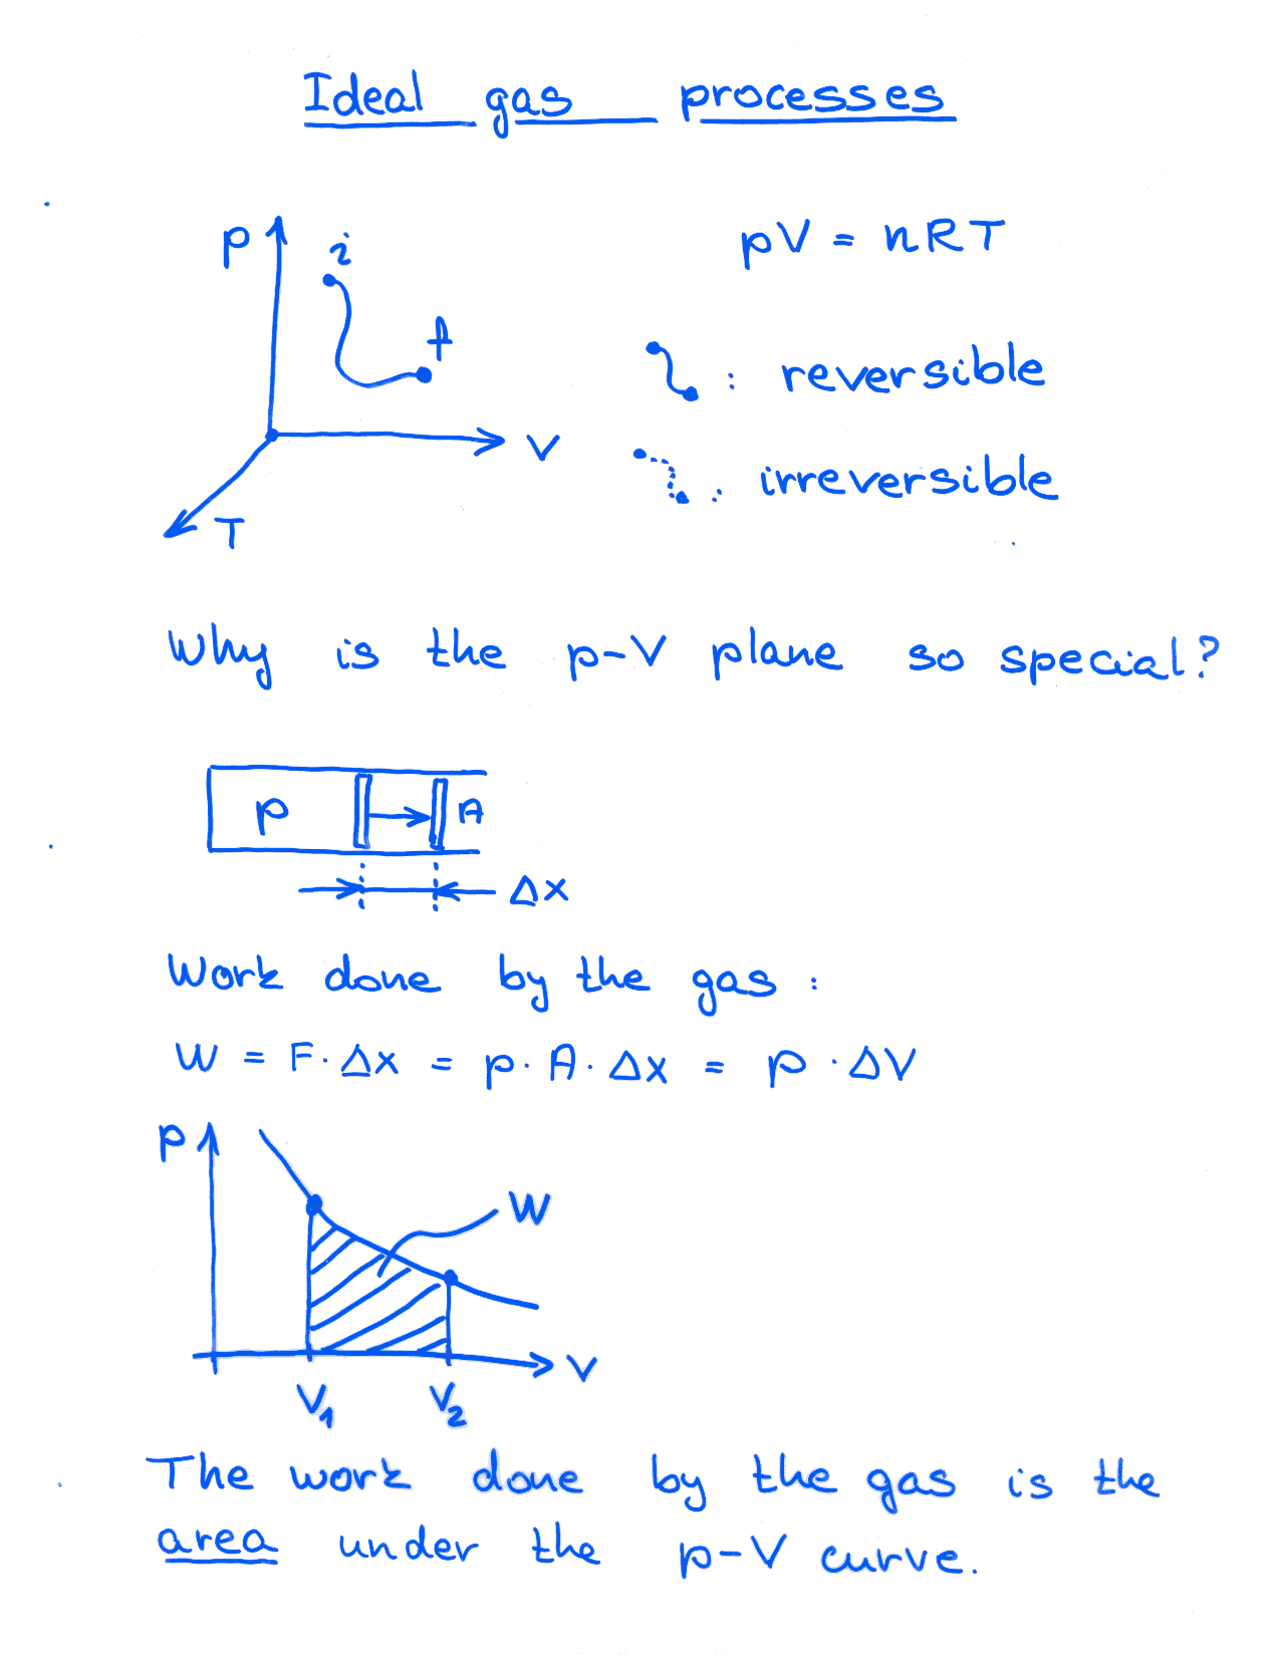 Ideal gas processes
p
i
f
V
T
pV = nRT
: reversible
: irreversible
Why is the p-V plane so special?
p
A
Δx
Work done by the gas :
W = F · Δx = p · A · Δx = p · ΔV
p
W
V
V₁
V₂
The work done by the gas is the
area under the p-V curve.